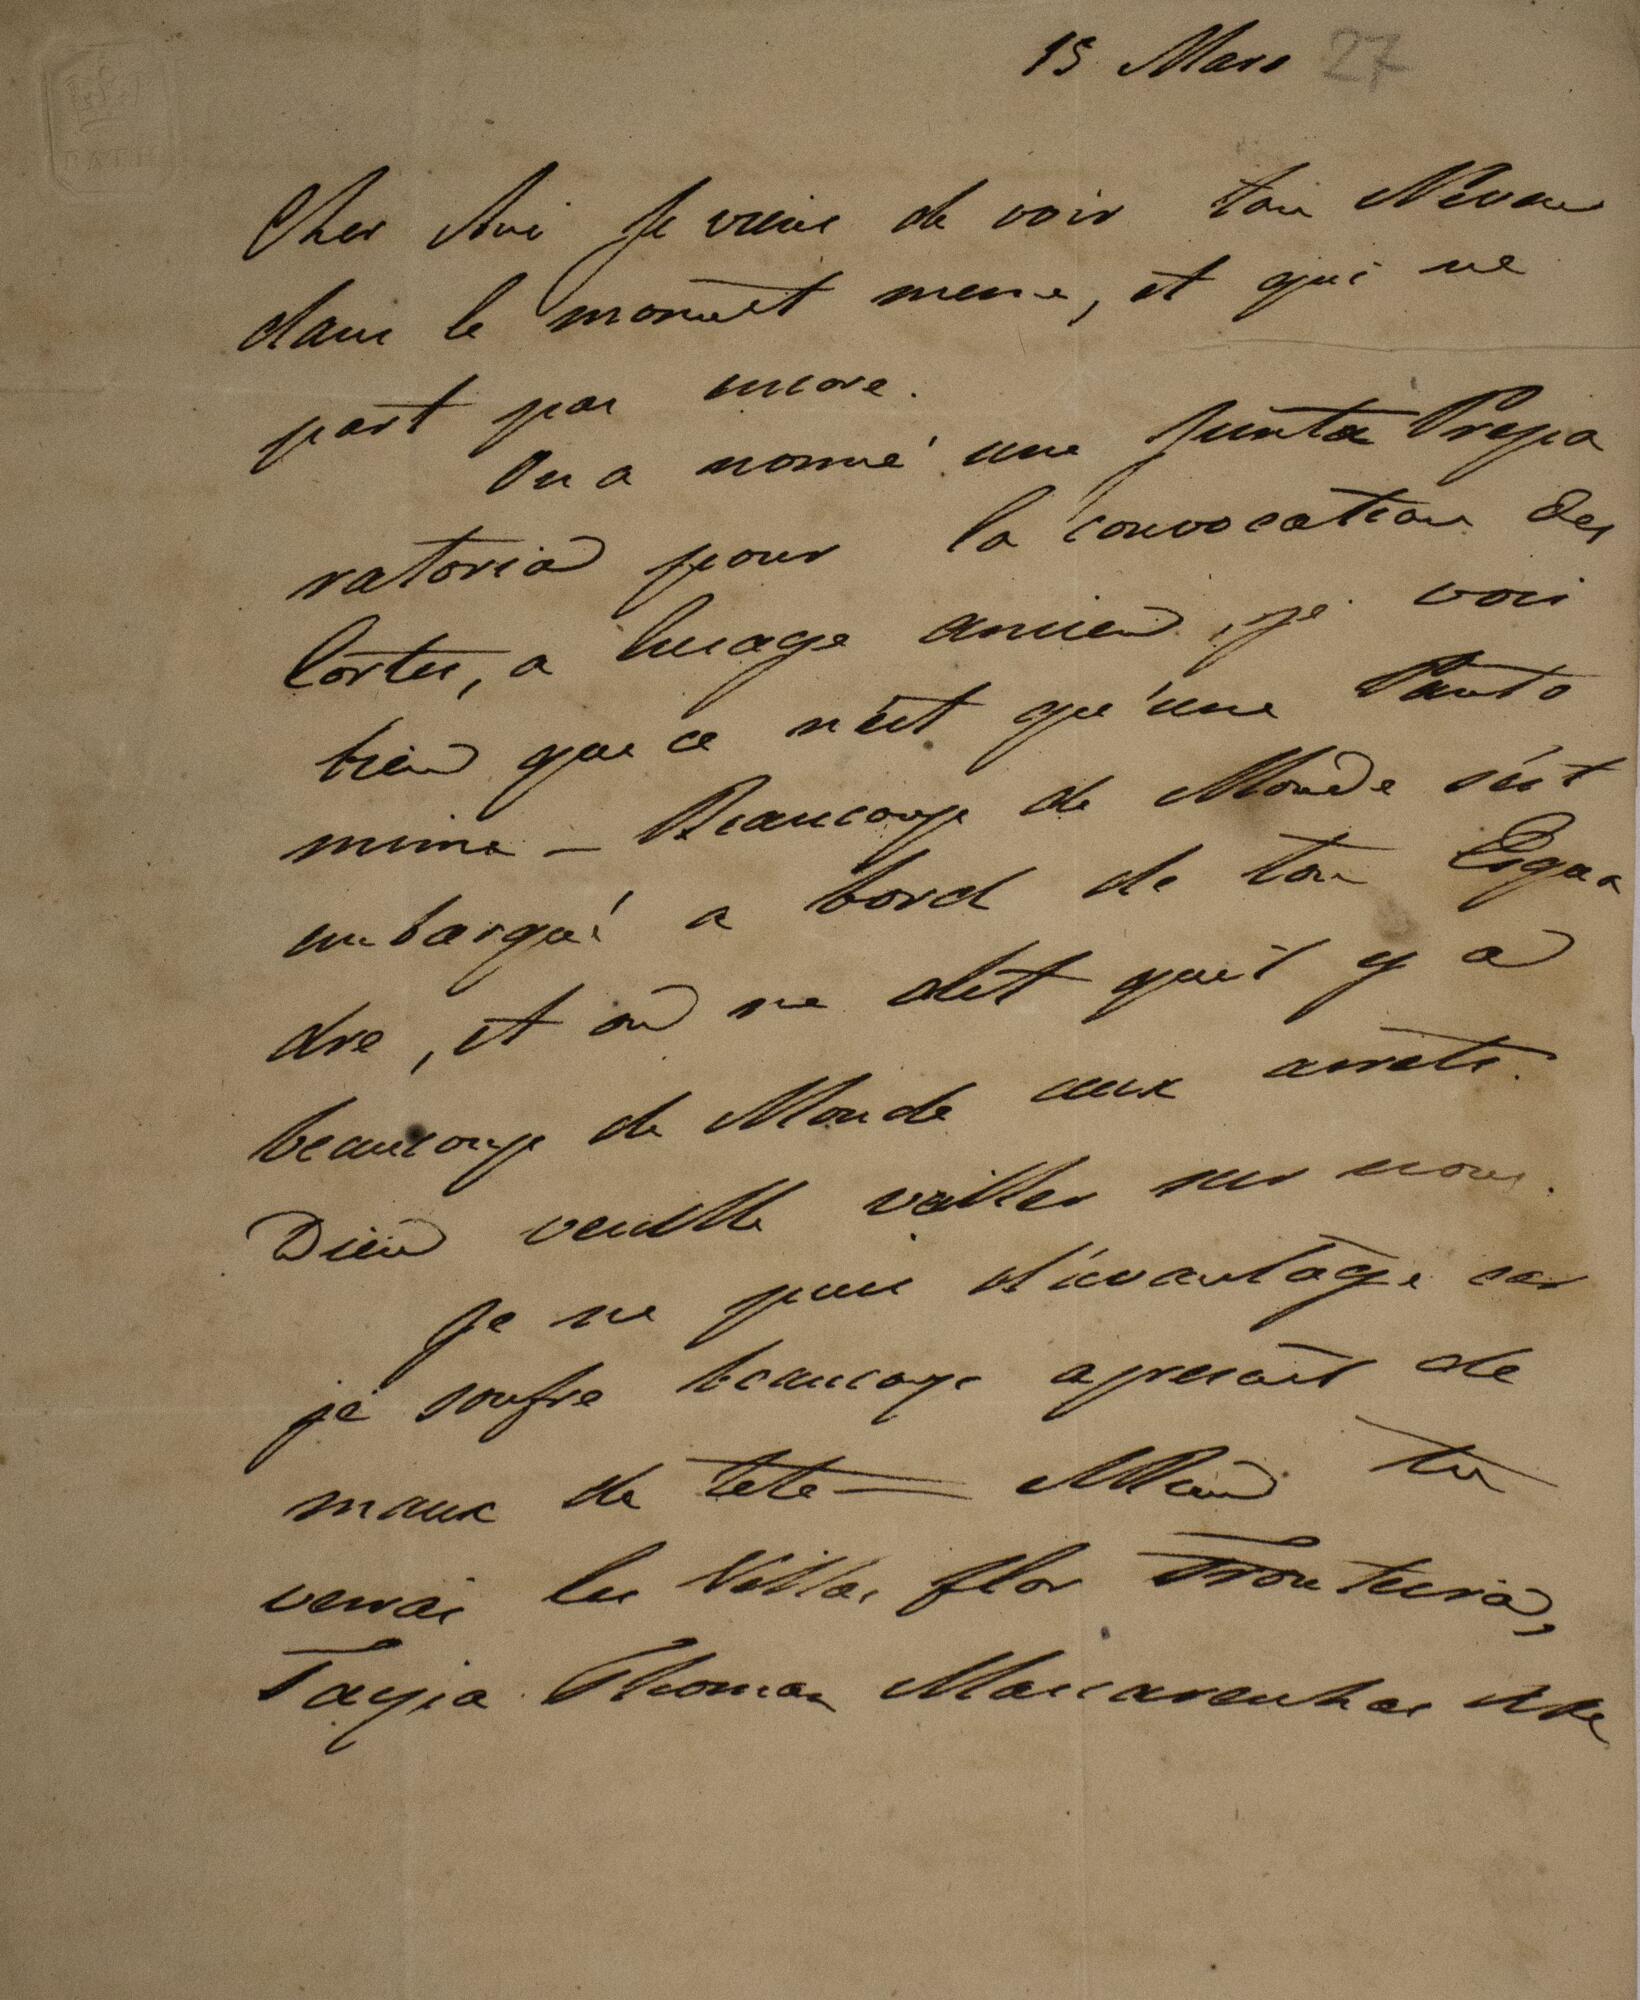 15 Mars 27
Cher Ami Je viens de voir ton Neveu
dans le moment meme, et qui ne
part pas encore.
On a nommé une Junta Prepa
ratoria pour la convocation des
Cortes, a l'usage ancien, je vois
bien que ce n'est qu'une Panto
mime – Beaucoup de Monde s'est
embarqué a bord de ton Esqua
dre, et on me dit qu'il y a
beaucoup de Monde aux arrets.
Dieu veuille veiller sur nous.
Je ne puis d'avantage car
je soufre beaucoup apresent de
maux de tete —
verrai les Villas flor Fronteira,
Taypa Thomar Mascarenhas